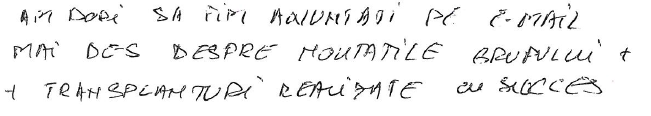 AM DORI SA FIM ANUNTATI PE E-MAIL
MAI DES DESPRE NOUTATILE GRUPULUI +
+ TRANSPLANTURI REALIZATE CU SUCCES